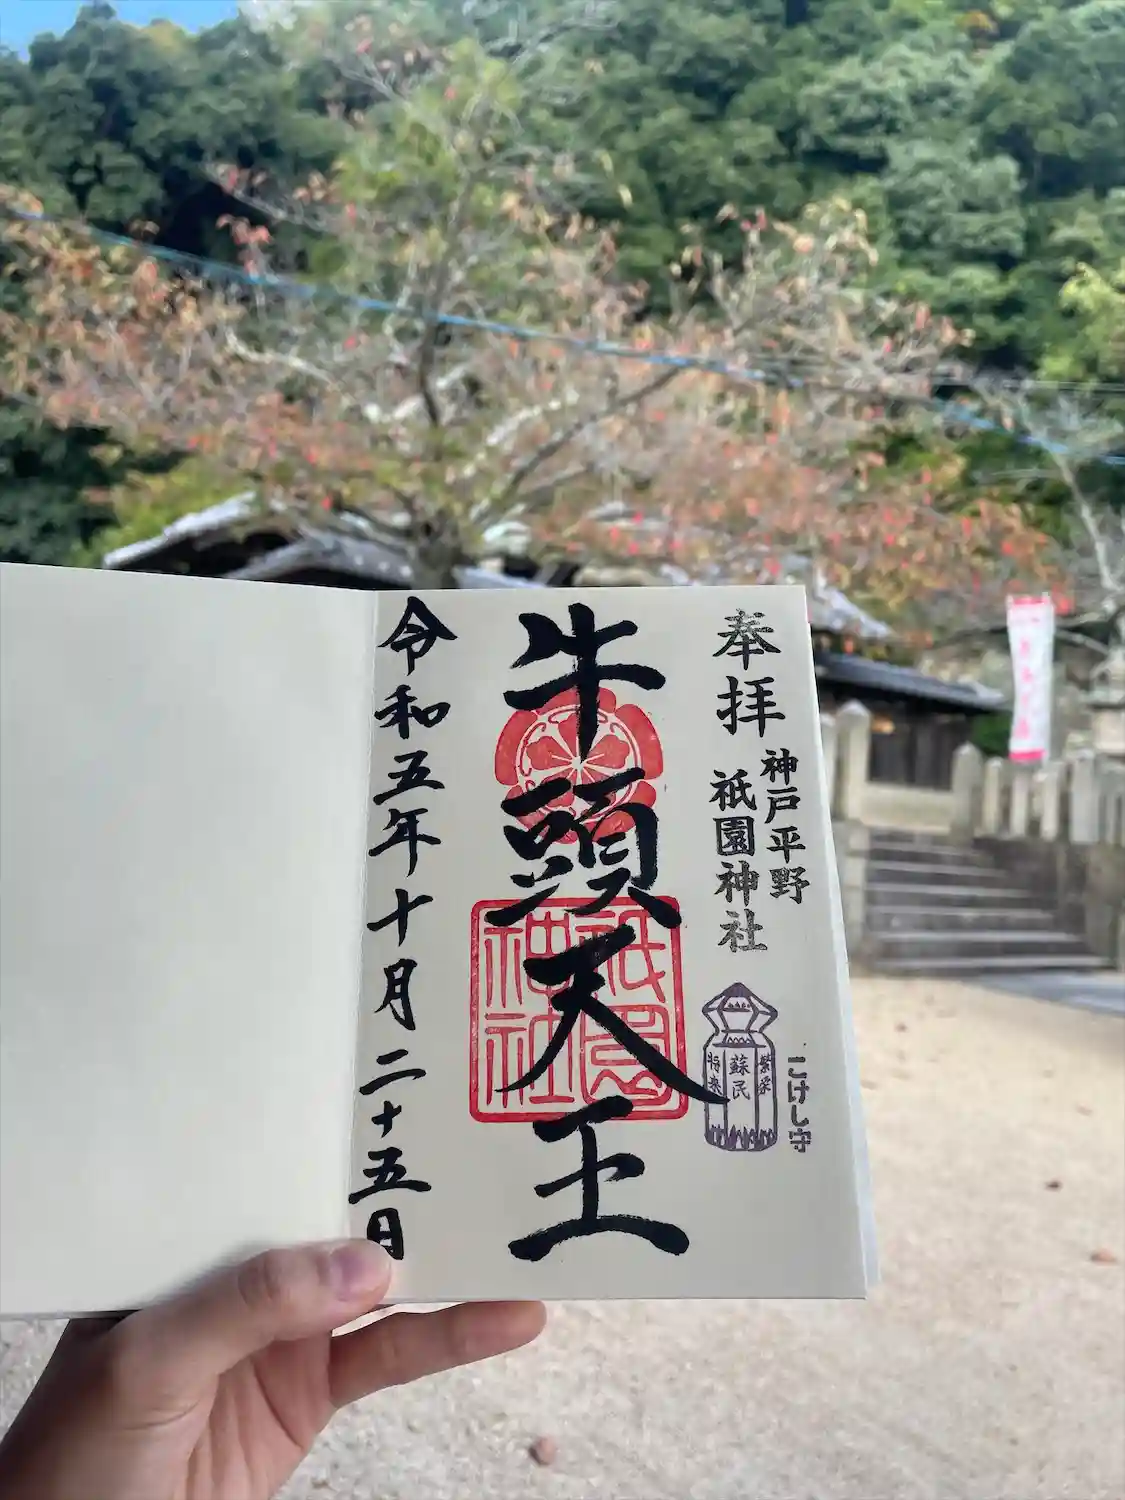 奉拝
神戸平野
祇園神社
繁栄
蘇民
将来
こけし守
牛頭天王
祇園
神社
令和五年十月二十五日